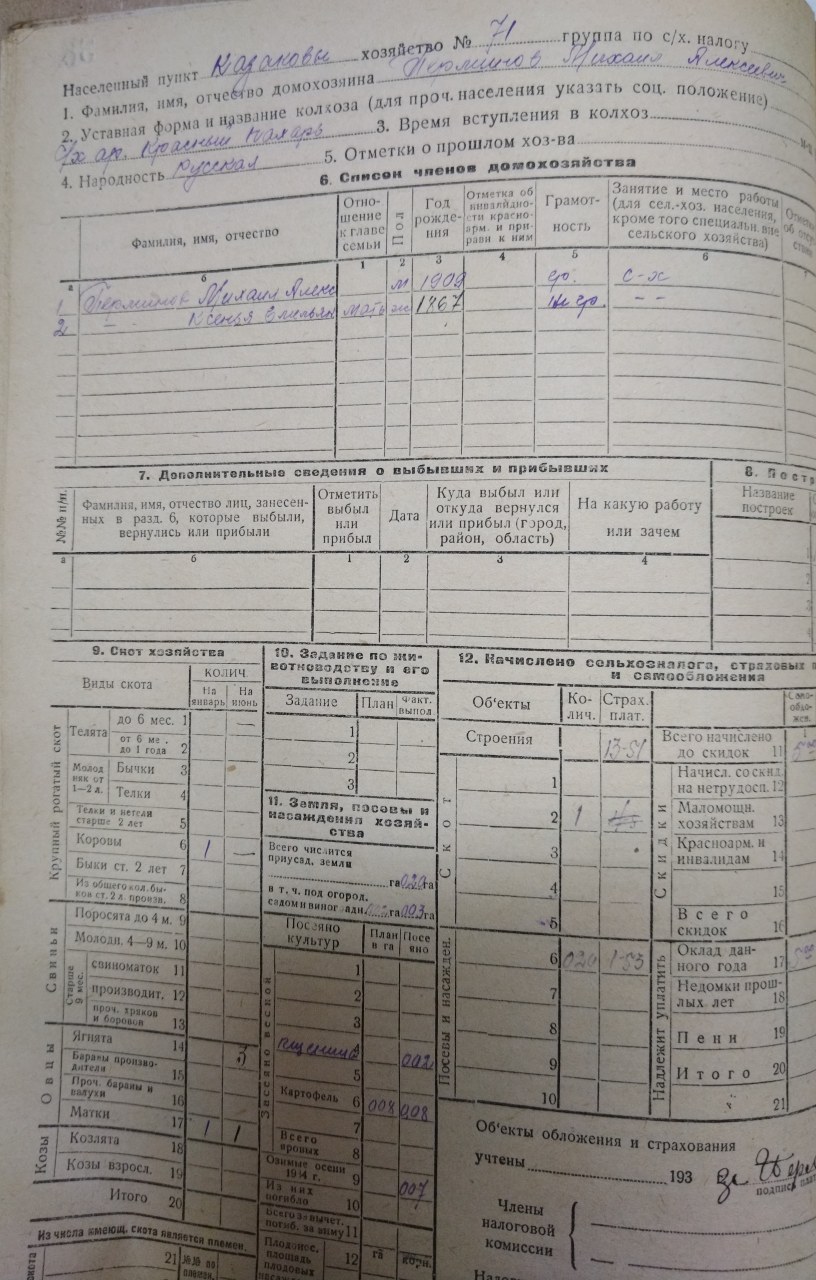 Населенный пункт Казаковы хозяйство № 71 группа по с/х. налогу
1. Фамилия, имя, отчество домохозяина Перминов Михаил Алексеевич
2. Уставная форма и название колхоза (для проч. населения указать соц. положение)
С/х ар. Красный Пахарь 3. Время вступления в колхоз
4. Народность Русская 5. Отметки о прошлом хоз-ва
6. Список членов домохозяйства
Фамилия, имя, отчество
Отно-
шение
к главе
семьи
Пол
Год
рожде-
ния
Отметка об
инвалидно-
сти красно-
арм. и при-
равн к ним
Грамот-
ность
Занятие и место работы
(для сел.-хоз. населения,
кроме того специальн. вне
сельского хозяйства)
а б 1 2 3 4 5 6
1 Перминов Михаил Алекс м 1909 гр. с-х
2 - - Ксенья Емельян мать ж 1867 не гр. - -
7. Дополнительные сведения о выбывших и прибывших
№№ п/п.
Фамилия, имя, отчество лиц, занесен-
ных в разд. 6, которые выбыли,
вернулись или прибыли
Отметить
выбыл
или
прибыл
Дата
Куда выбыл или
откуда вернулся
или прибыл (город,
район, область)
На какую работу
или зачем
а б 1 2 3 4
8. Постр
Название
построек
9. Скот хозяйства
Виды скота
колич.
На январь
На июнь
Крупный рогатый скот
Телята
до 6 мес. 1 —
от 6 ме.
до 1 года 2
Молод
няк от
1—2 л.
Бычки 3
Телки 4
Телки и нетели
старше 2 лет 5
Коровы 6 1 —
Быки ст. 2 лет 7
Из общего кол. бы-
ков ст. 2 л. произв. 8
Свиньи
Поросята до 4 м. 9
Молодн. 4—9 м. 10
Старше
9 мес.
свиноматок 11
производит. 12
проч. хряков
и боровов 13
Овцы
Ягнята 14 3
Бараны произво-
дители 15
Проч. бараны и
валухи 16
Матки 17 1 1
Козы
Козлята 18
Козы взросл. 19
Итого 20
Из числа имеющ. скота является племен.
21 №№ по
10. Задание по жи-
вотноводству и его
выполнение
Задание План Факт.
выпол.
1
2
3
11. Земля, посевы и
насаждения хозяй-
ства
Всего числится
приусад. земли
га 020 га
в т. ч. под огород,
садом и виноградн. га 003 га
Посеяно
культур
План
в га
Посе
яно
Засеяно весной
1
2
3
пшеница 4 002
5
Картофель 6 008 008
7
Всего
яровых 8
Озимые осени
1934 г. 9 007
Из них
погибло 10
Всего за вычет.
погиб. за зиму 11
Плодонос.
площадь
плодовых 12 га корн.
12. Начислено сельхозналога, страховых
и самообложения
Об'екты
Ко-
лич.
Страх.
плат.
Строения 13-51
Скот
1
2 1
3
4
5
Посевы и насажден.
6 020 1-53
7
8
9
10
Само-
обло-
жен.
Всего начислено
до скидок 11
Скидки
Начисл. со скид.
на нетрудосп. 12
Маломощн.
хозяйствам 13
Красноарм. и
инвалидам 14
15
Всего
скидок 16
Надлежит уплатить
Оклад дан-
ного года 17
Недоимки прош-
лых лет 18
Пени 19
Итого 20
21
Об'екты обложения и страхования
учтены 193
подпись
Члены
налоговой
комиссии